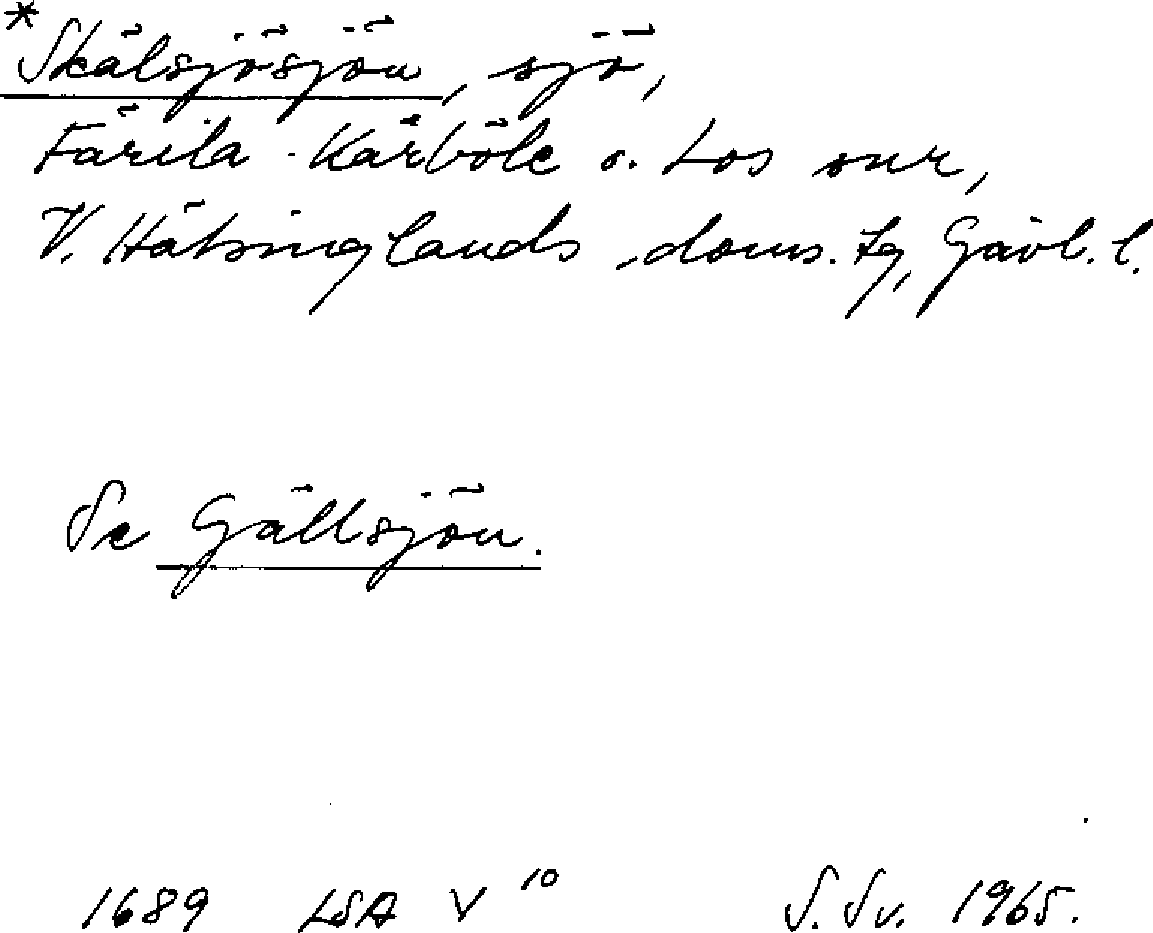 *Skälsjösjön, sjö,
Färila-Kårböle o. Los snr,
V. Hälsinglands doms. tg, Gävl. l.
Se Gällsjön.
1689 LSA V 10 S. Sv. 1965.